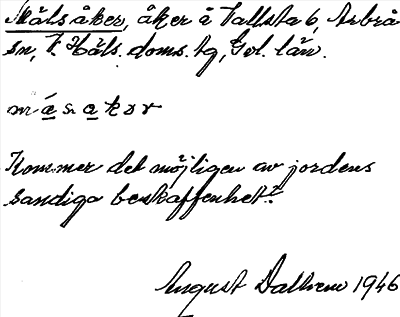 Målsåker, åker å Vallsta 6, Arbrå
sn, V. Häls. doms. tg, Gvl. län.
Kommer det möjligen av jordens
sandiga beskaffenhet?
August Dalhem 1946